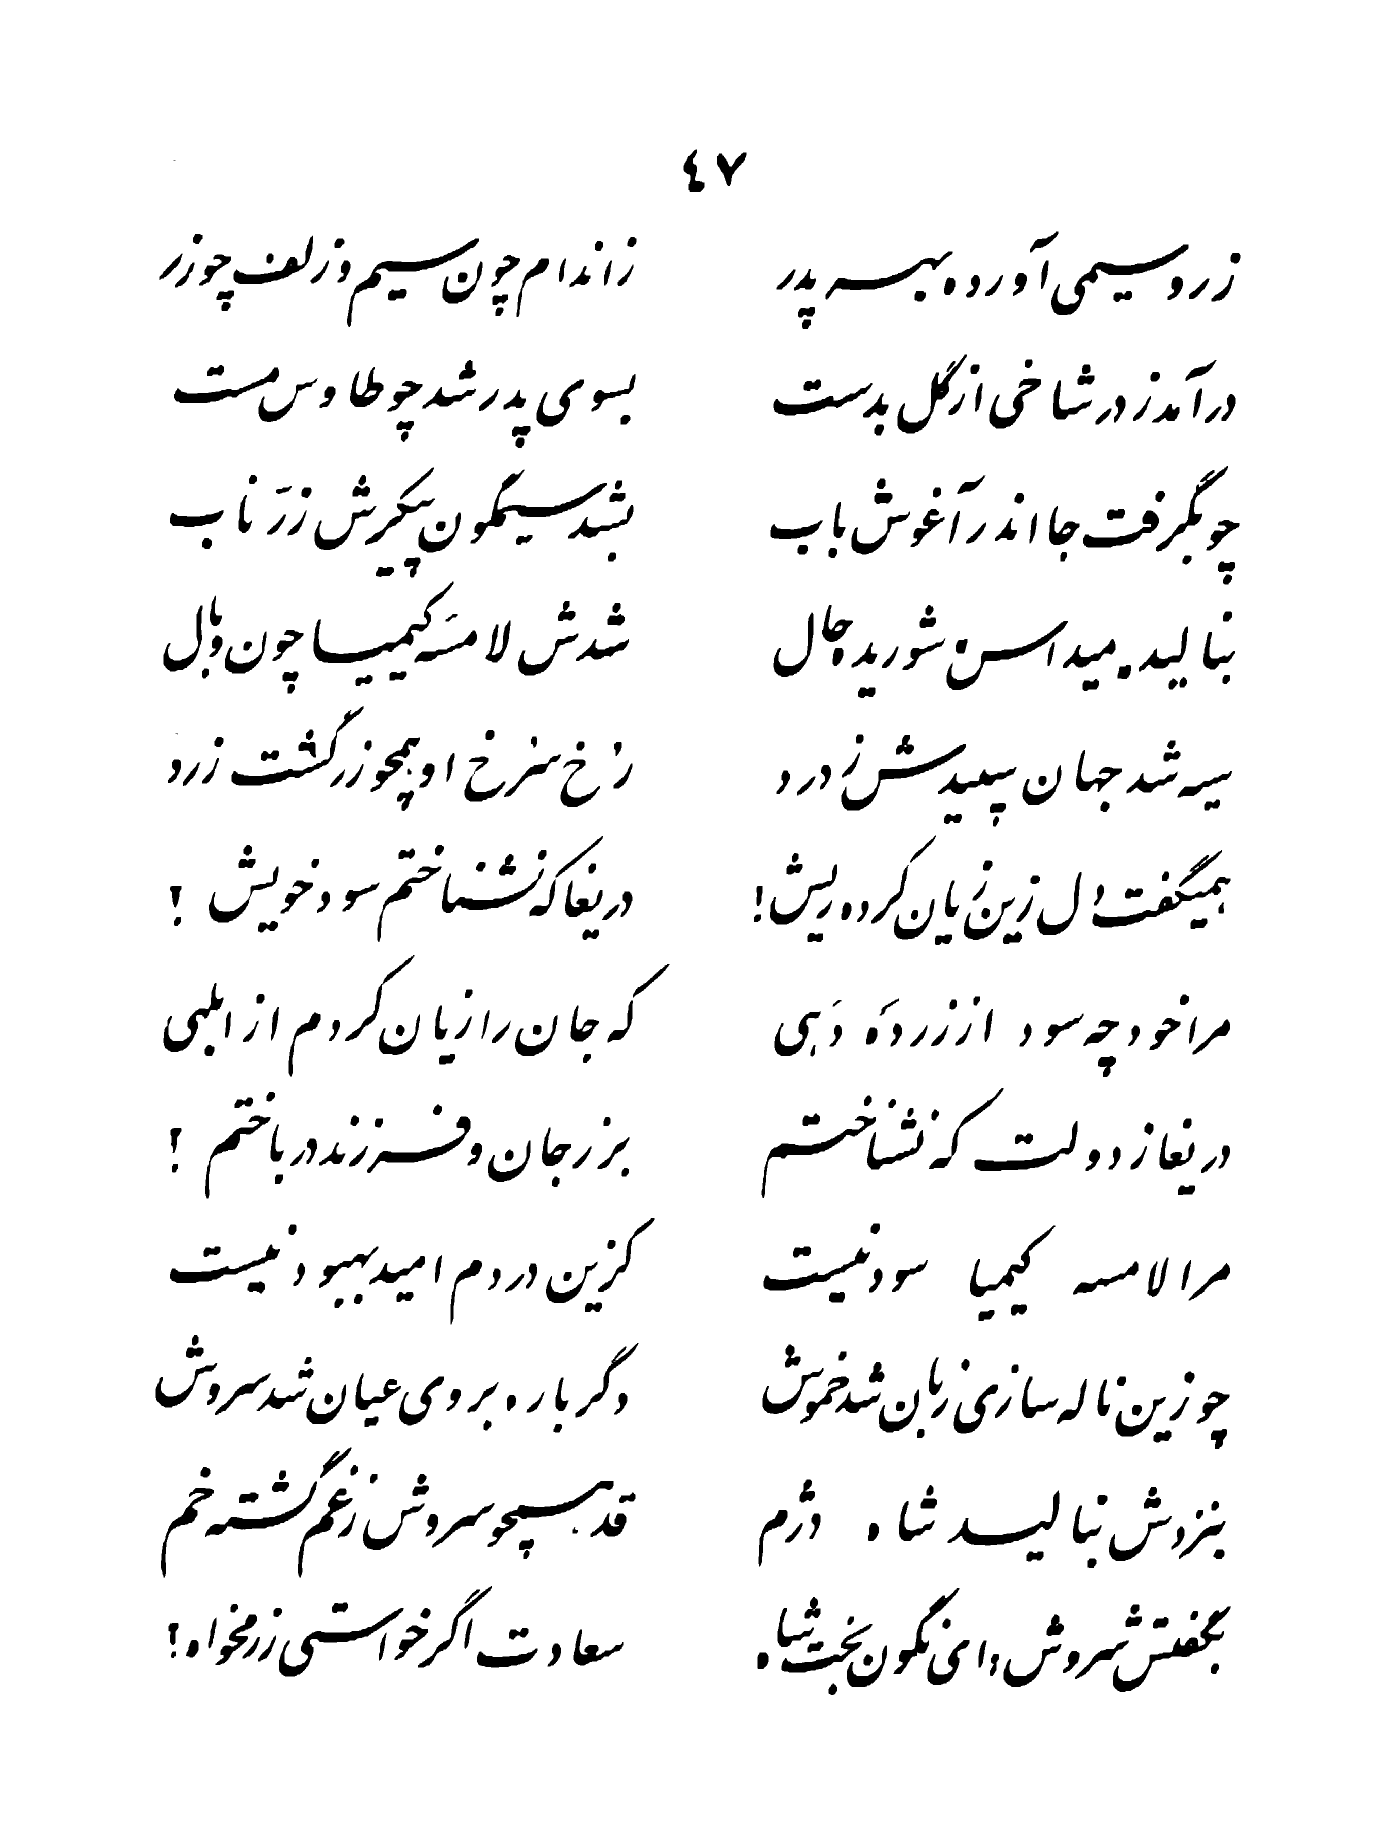 ٤٧
زر و سیمی آورده بهر پدر زاندام چون سیم و زلف چو زر
در آمد ز در شاخی از گل بدست بسوی پدر شد چو طاوس مست
چو بگرفت جا اندر آغوش باب بشد سیمگون پیکرش زرّ ناب
بنالید میداس شوریده حال شدش لامسَه کیمیا چون وبال
سیه شد جهان سپیدش ز درد رُخ سُرخ او همچو زر گشت زرد
همیگفت دل زین زیان کرده ریش! دریغا که نشناختم سود خویش ؟
مرا خود چه سود از زر دَه دَهی که جان را زیان کردم از ابلهی
دریغا ز دولت که نشناختم بزر جان و فرزند در باختم ؟
مرا لامسه کیمیا سود نیست کزین دردم امید بهبود نیست
چو زین ناله سازی زبان شد خموش دگر باره بر وی عیان شد سروش
بنزدش بنالید شاه دژم قد همچو سروش ز غم گشته خم
بگفتش سروش، ای نگون بخت شاه سعادت اگر خواستی زر مخواه؟